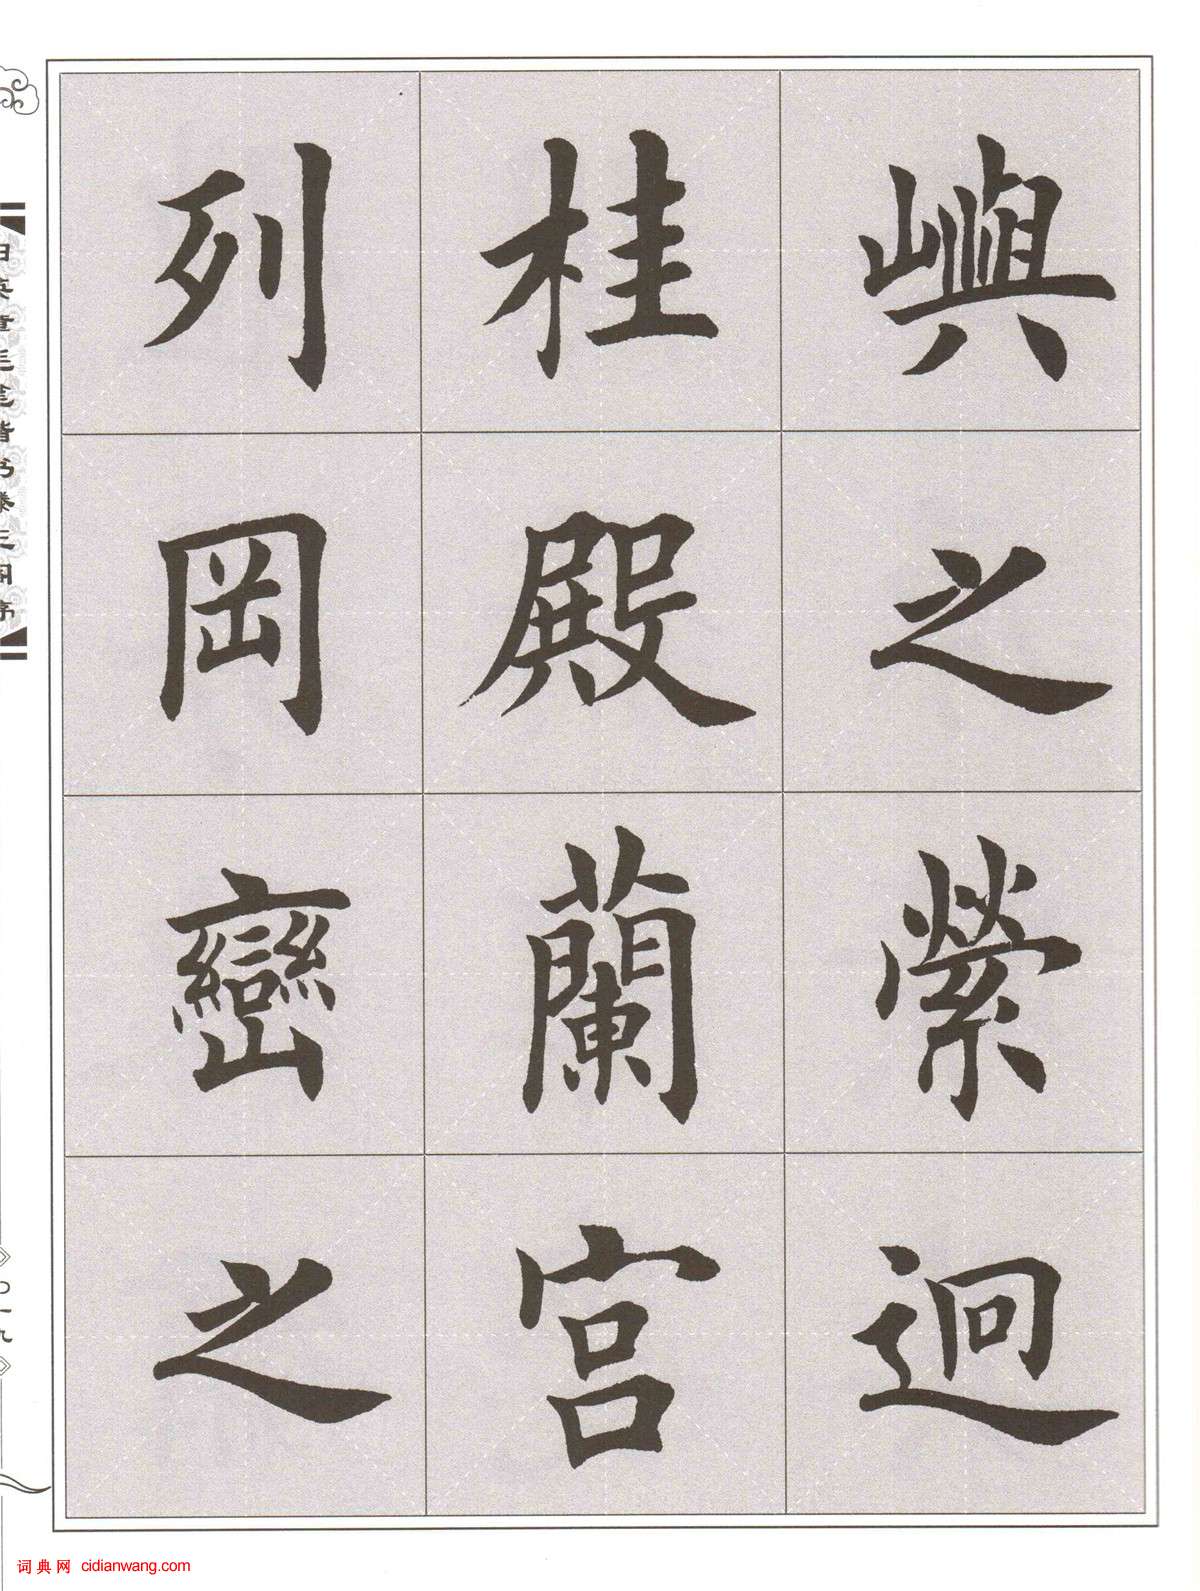 嶼之縈迴
桂殿蘭宮
列岡巒之
田英章毛笔楷书滕王阁序
词典网 cidianwang.com